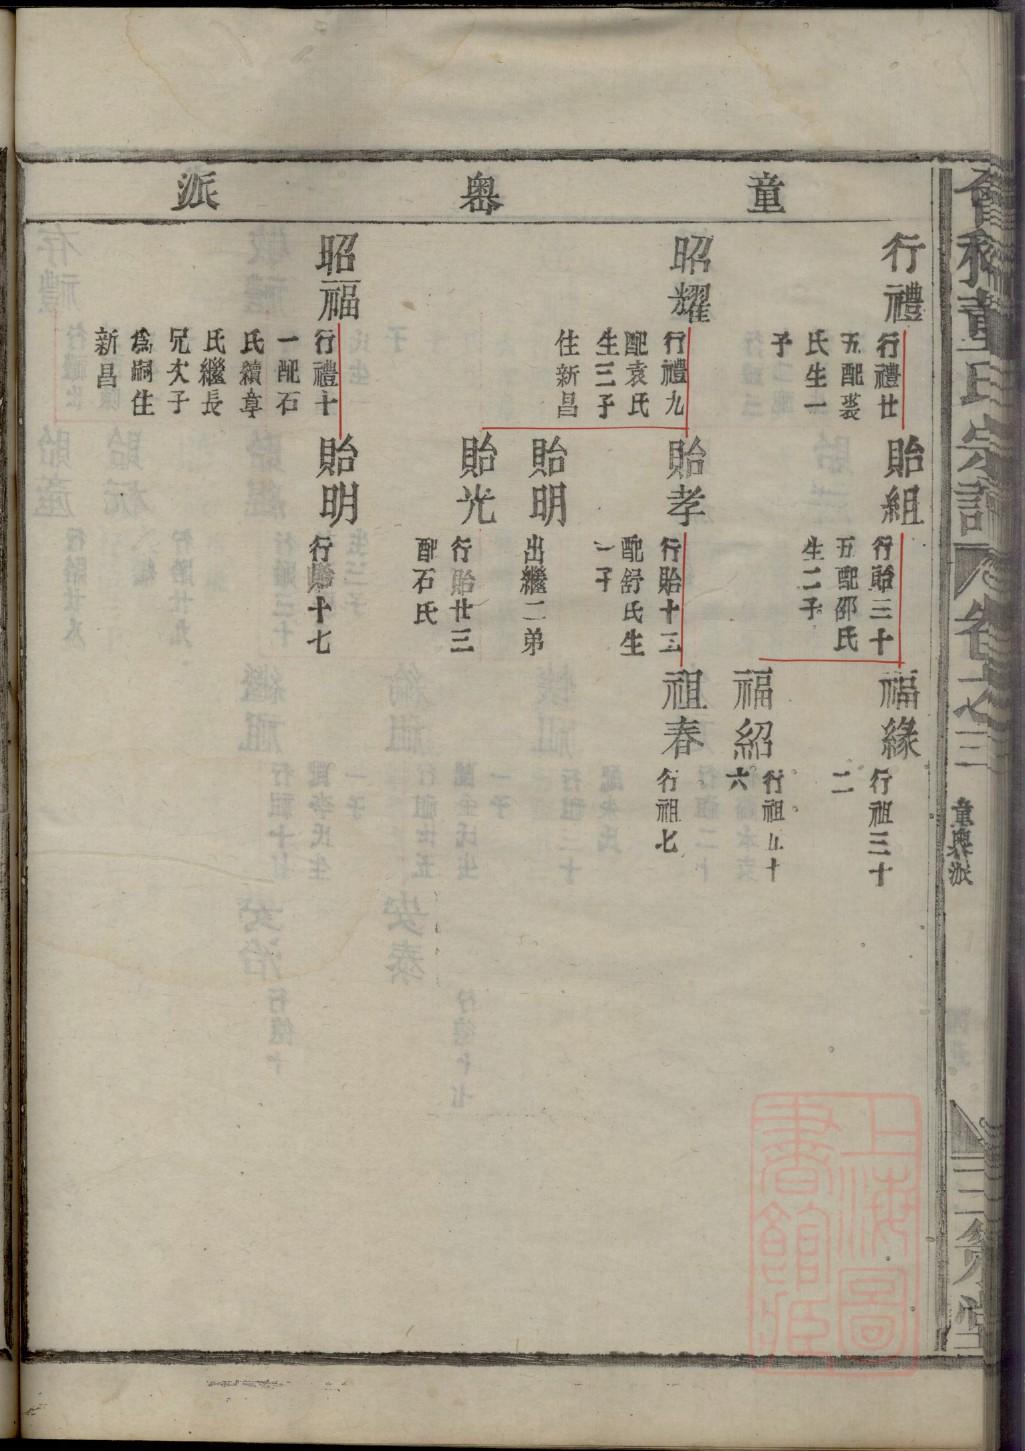 童奥派
行禮
行禮廿
五配裘
氏生一
子
貽組
行貽三十
五配邵氏
生二子
福緣
行祖三十
二
福紹
行祖五十
六
昭耀
行禮九
配袁氏
生三子
住新昌
貽孝
行貽十三
配舒氏生
一子
祖春
行祖七
貽明
出繼二弟
貽光
行貽廿三
配石氏
昭福
行禮十
一配石
氏續章
氏繼長
兄次子
爲嗣住
新昌
貽明
行貽十七
會稽童氏宗譜
卷之三
童奥派
三策堂
上海圖
書館藏